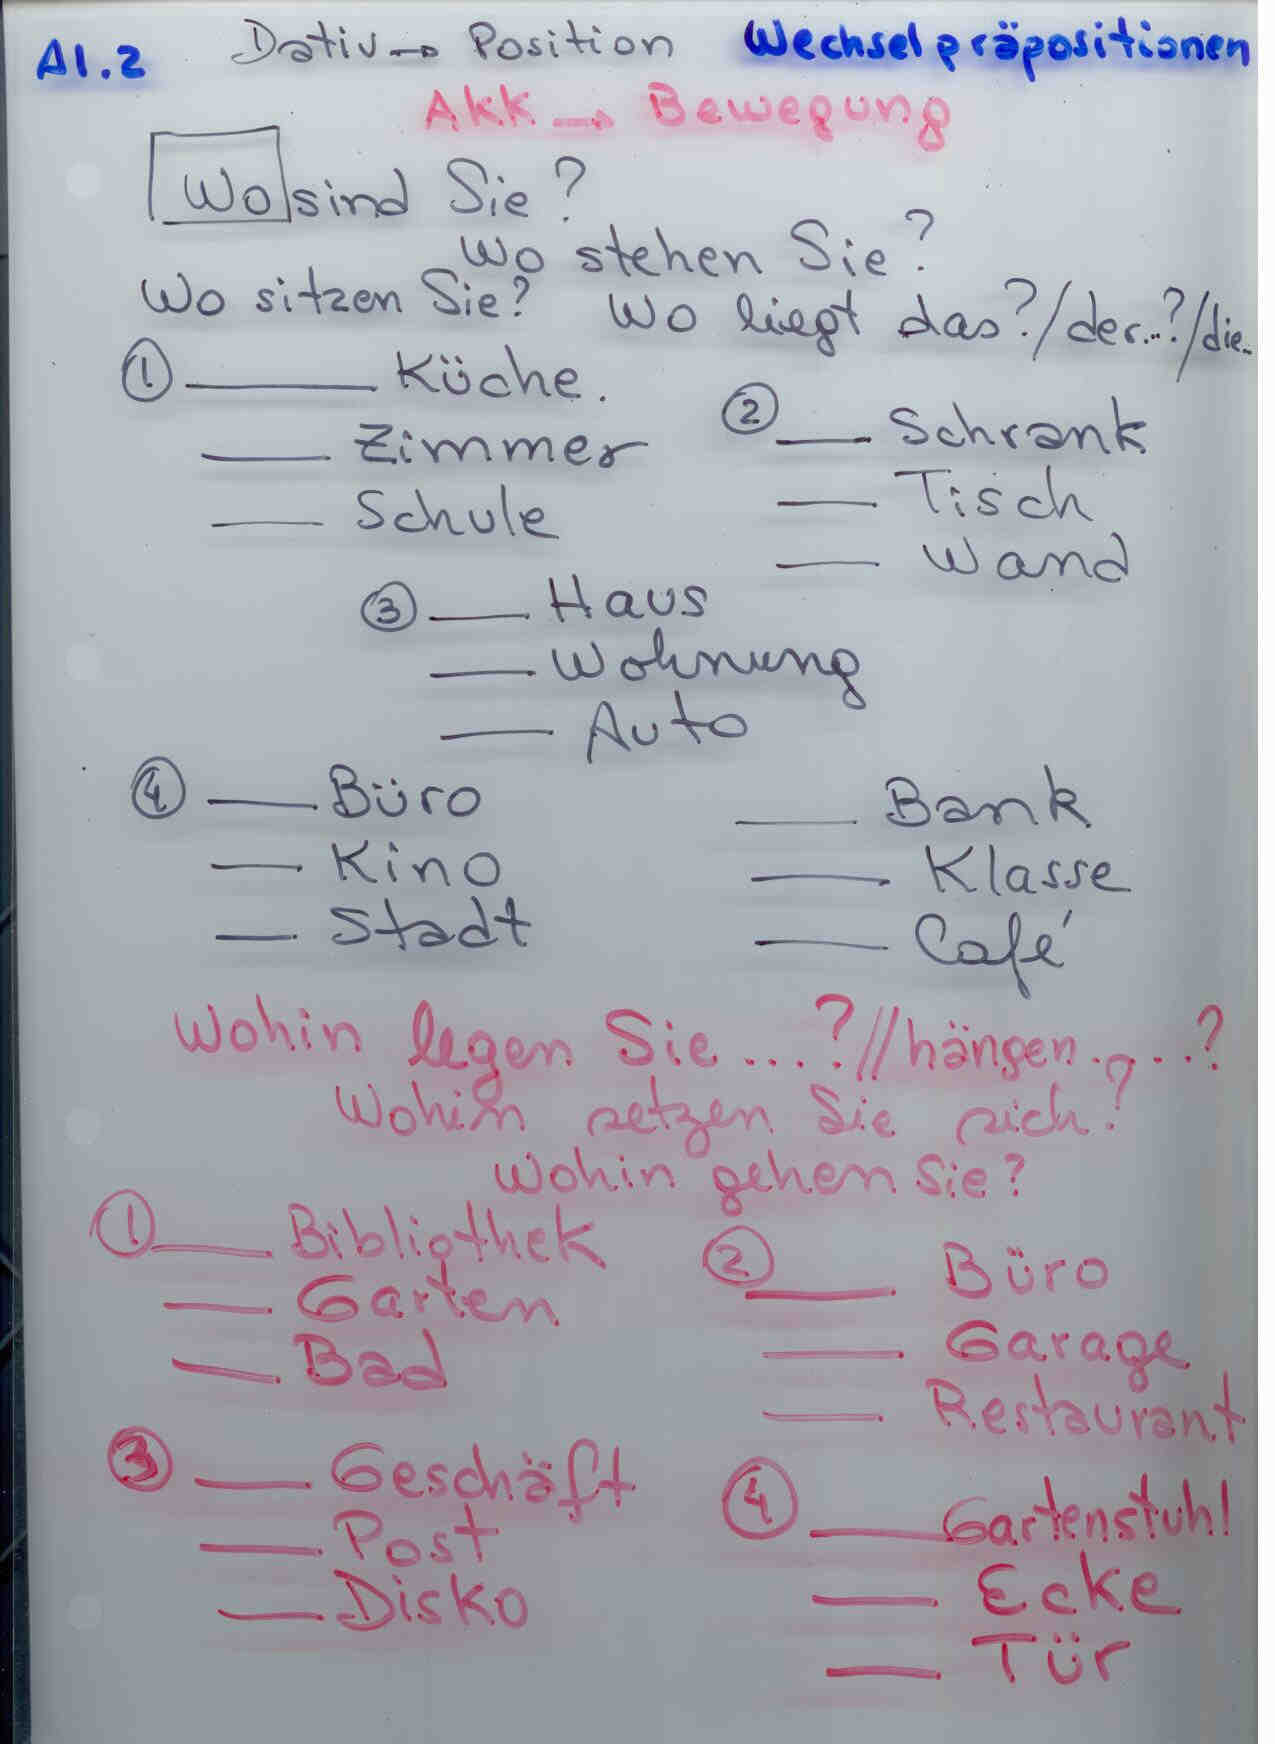 A1.2 Dativ → Position Wechselpräpositionen
Akk → Bewegung
Wo sind Sie?
Wo stehen Sie?
Wo sitzen Sie? Wo liegt das?/der...?/die..
① ____ Küche.
____ Zimmer
____ Schule
② ____ Schrank
____ Tisch
____ Wand
③ ____ Haus
____ Wohnung
____ Auto
④ ____ Büro
____ Kino
____ Stadt
____ Bank
____ Klasse
____ Café
Wohin legen Sie ....?//hängen.....?
Wohin setzen Sie sich?
Wohin gehen Sie?
① ____ Bibliothek
____ Garten
____ Bad
② ____ Büro
____ Garage
____ Restaurant
③ ____ Geschäft
____ Post
____ Disko
④ ____ Gartenstuhl
____ Ecke
____ Tür